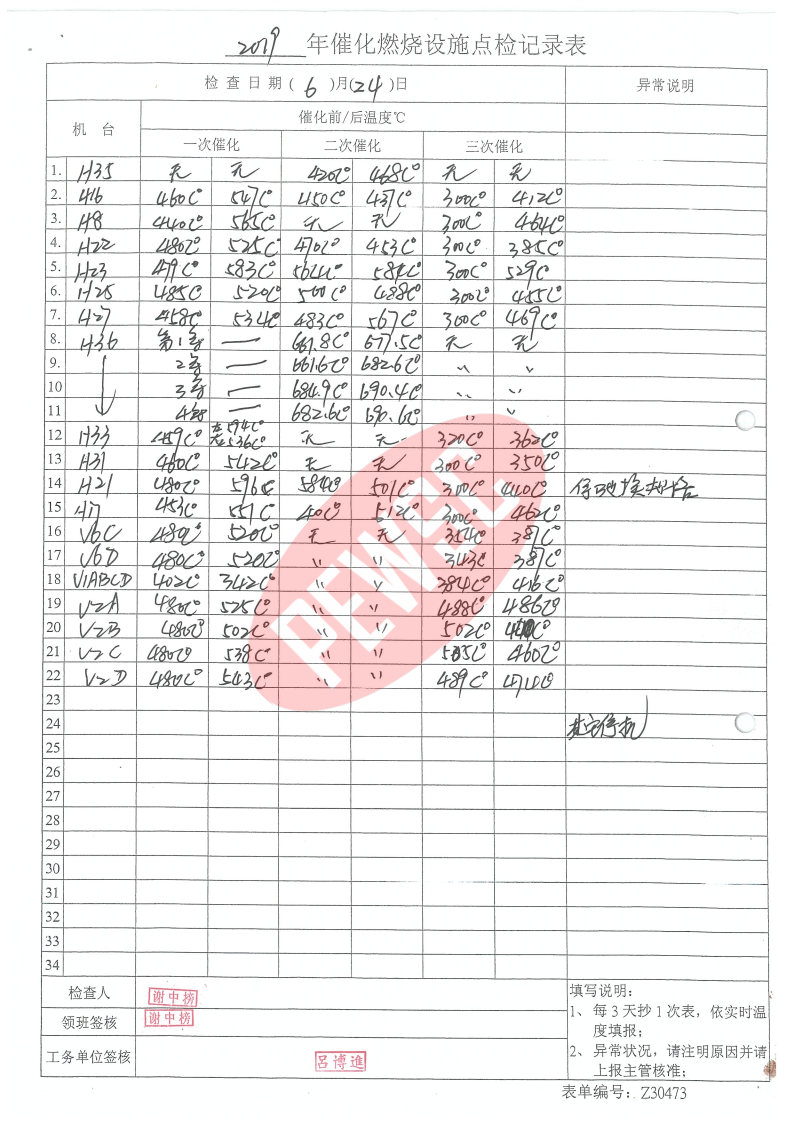 2019 年催化燃烧设施点检记录表
检查日期(6)月(24)日 异常说明
机 台 催化前/后温度℃
一次催化 二次催化 三次催化
1. H35 无 无 420C° 468C° 无 无
2. H16 460C° 547C° 450C° 437C° 300C° 412C°
3. H8 440C° 565C° 无 无 300C° 464C°
4. H22 480C° 525C° 470C° 453C° 300C° 385C°
5. H23 479C° 583C° 584C° 300C° 529C°
6. H25 485C° 520C° 500C° 488C° 300C° 455C°
7. H27 458C° 534C° 483C° 567C° 300C° 469C°
8. H36 第1号 — 661.8C° 677.5C° 无 无
9. 2号 — 661.6C° 682.6C° 〃 〃
10 3号 — 684.9C° 690.4C° 〃 〃
11 — 682.6C° 690.6C° 〃 〃
12 H33 459C° 左594C° 右536C° 无 无 320C° 362C°
13 H31 460C° 542C° 无 无 300C° 350C°
14 H21 480C° 596C 584C° 501C° 300C° 440C°
15 H7 453C° 551C 512C° 300C° 462C°
16 V6C 480C 520C° 无 无 354C° 387C°
17 V6D 480C° 520C° 〃 〃 343C 387C°
18 V1ABCD 402C° 342C° 〃 〃 384C° 416C°
19 V2A 480C° 525C° 〃 〃 488C° 486C°
20 V2B 480C° 502C° 〃 〃 502C°
21 V2C 480C° 538C° 〃 〃 460C°
22 V2D 480C° 543C° 〃 〃 489C° 474C°
23
24 其它停机
25
26
27
28
29
30
31
32
33
34
PEWSC
检查人 谢中榜
领班签核 谢中榜
工务单位签核 呂博進
填写说明:
1、每3天抄1次表，依实时温
度填报;
2、异常状况，请注明原因并请
上报主管核准;
表单编号: Z30473